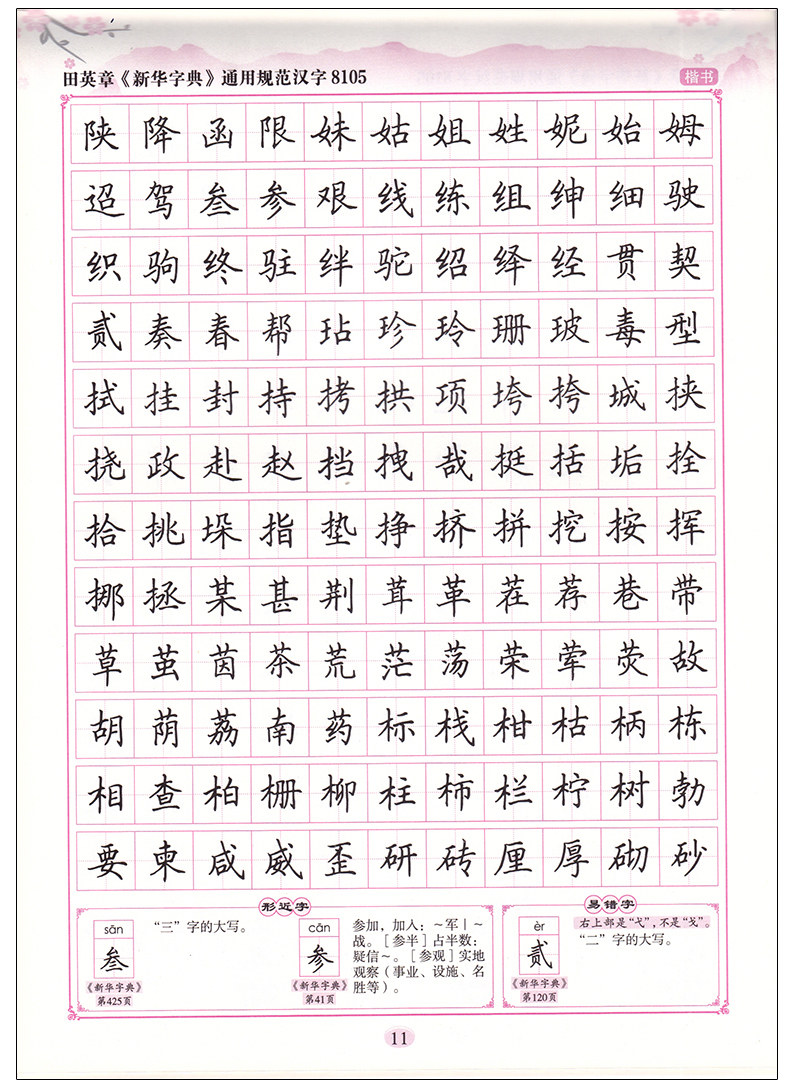 田英章《新华字典》通用规范汉字8105
楷书
陕降函限妹姑姐姓妮始姆
迢驾叁参艰线练组绅细驶
织驹终驻绊驼绍绎经贯契
贰奏春帮玷珍玲珊玻毒型
拭挂封持拷拱项垮挎城挟
挠政赴赵挡拽哉挺括垢拴
拾挑垛指垫挣挤拼挖按挥
挪拯某甚荆茸革茬荐巷带
草茧茵茶荒茫荡荣荤荧故
胡荫荔南药标栈柑枯柄栋
相查柏栅柳柱柿栏柠树勃
要柬咸威歪研砖厘厚砌砂
形近字
sān
叁
《新华字典》
第425页
“三”字的大写。
cān
参
《新华字典》
第41页
参加，加入：～军｜～
战。［参半］占半数：
疑信～。［参观］实地
观察（事业、设施、名
胜等）。
易错字
èr
贰
《新华字典》
第120页
右上部是“弋”，不是“戈”。
“二”字的大写。
11